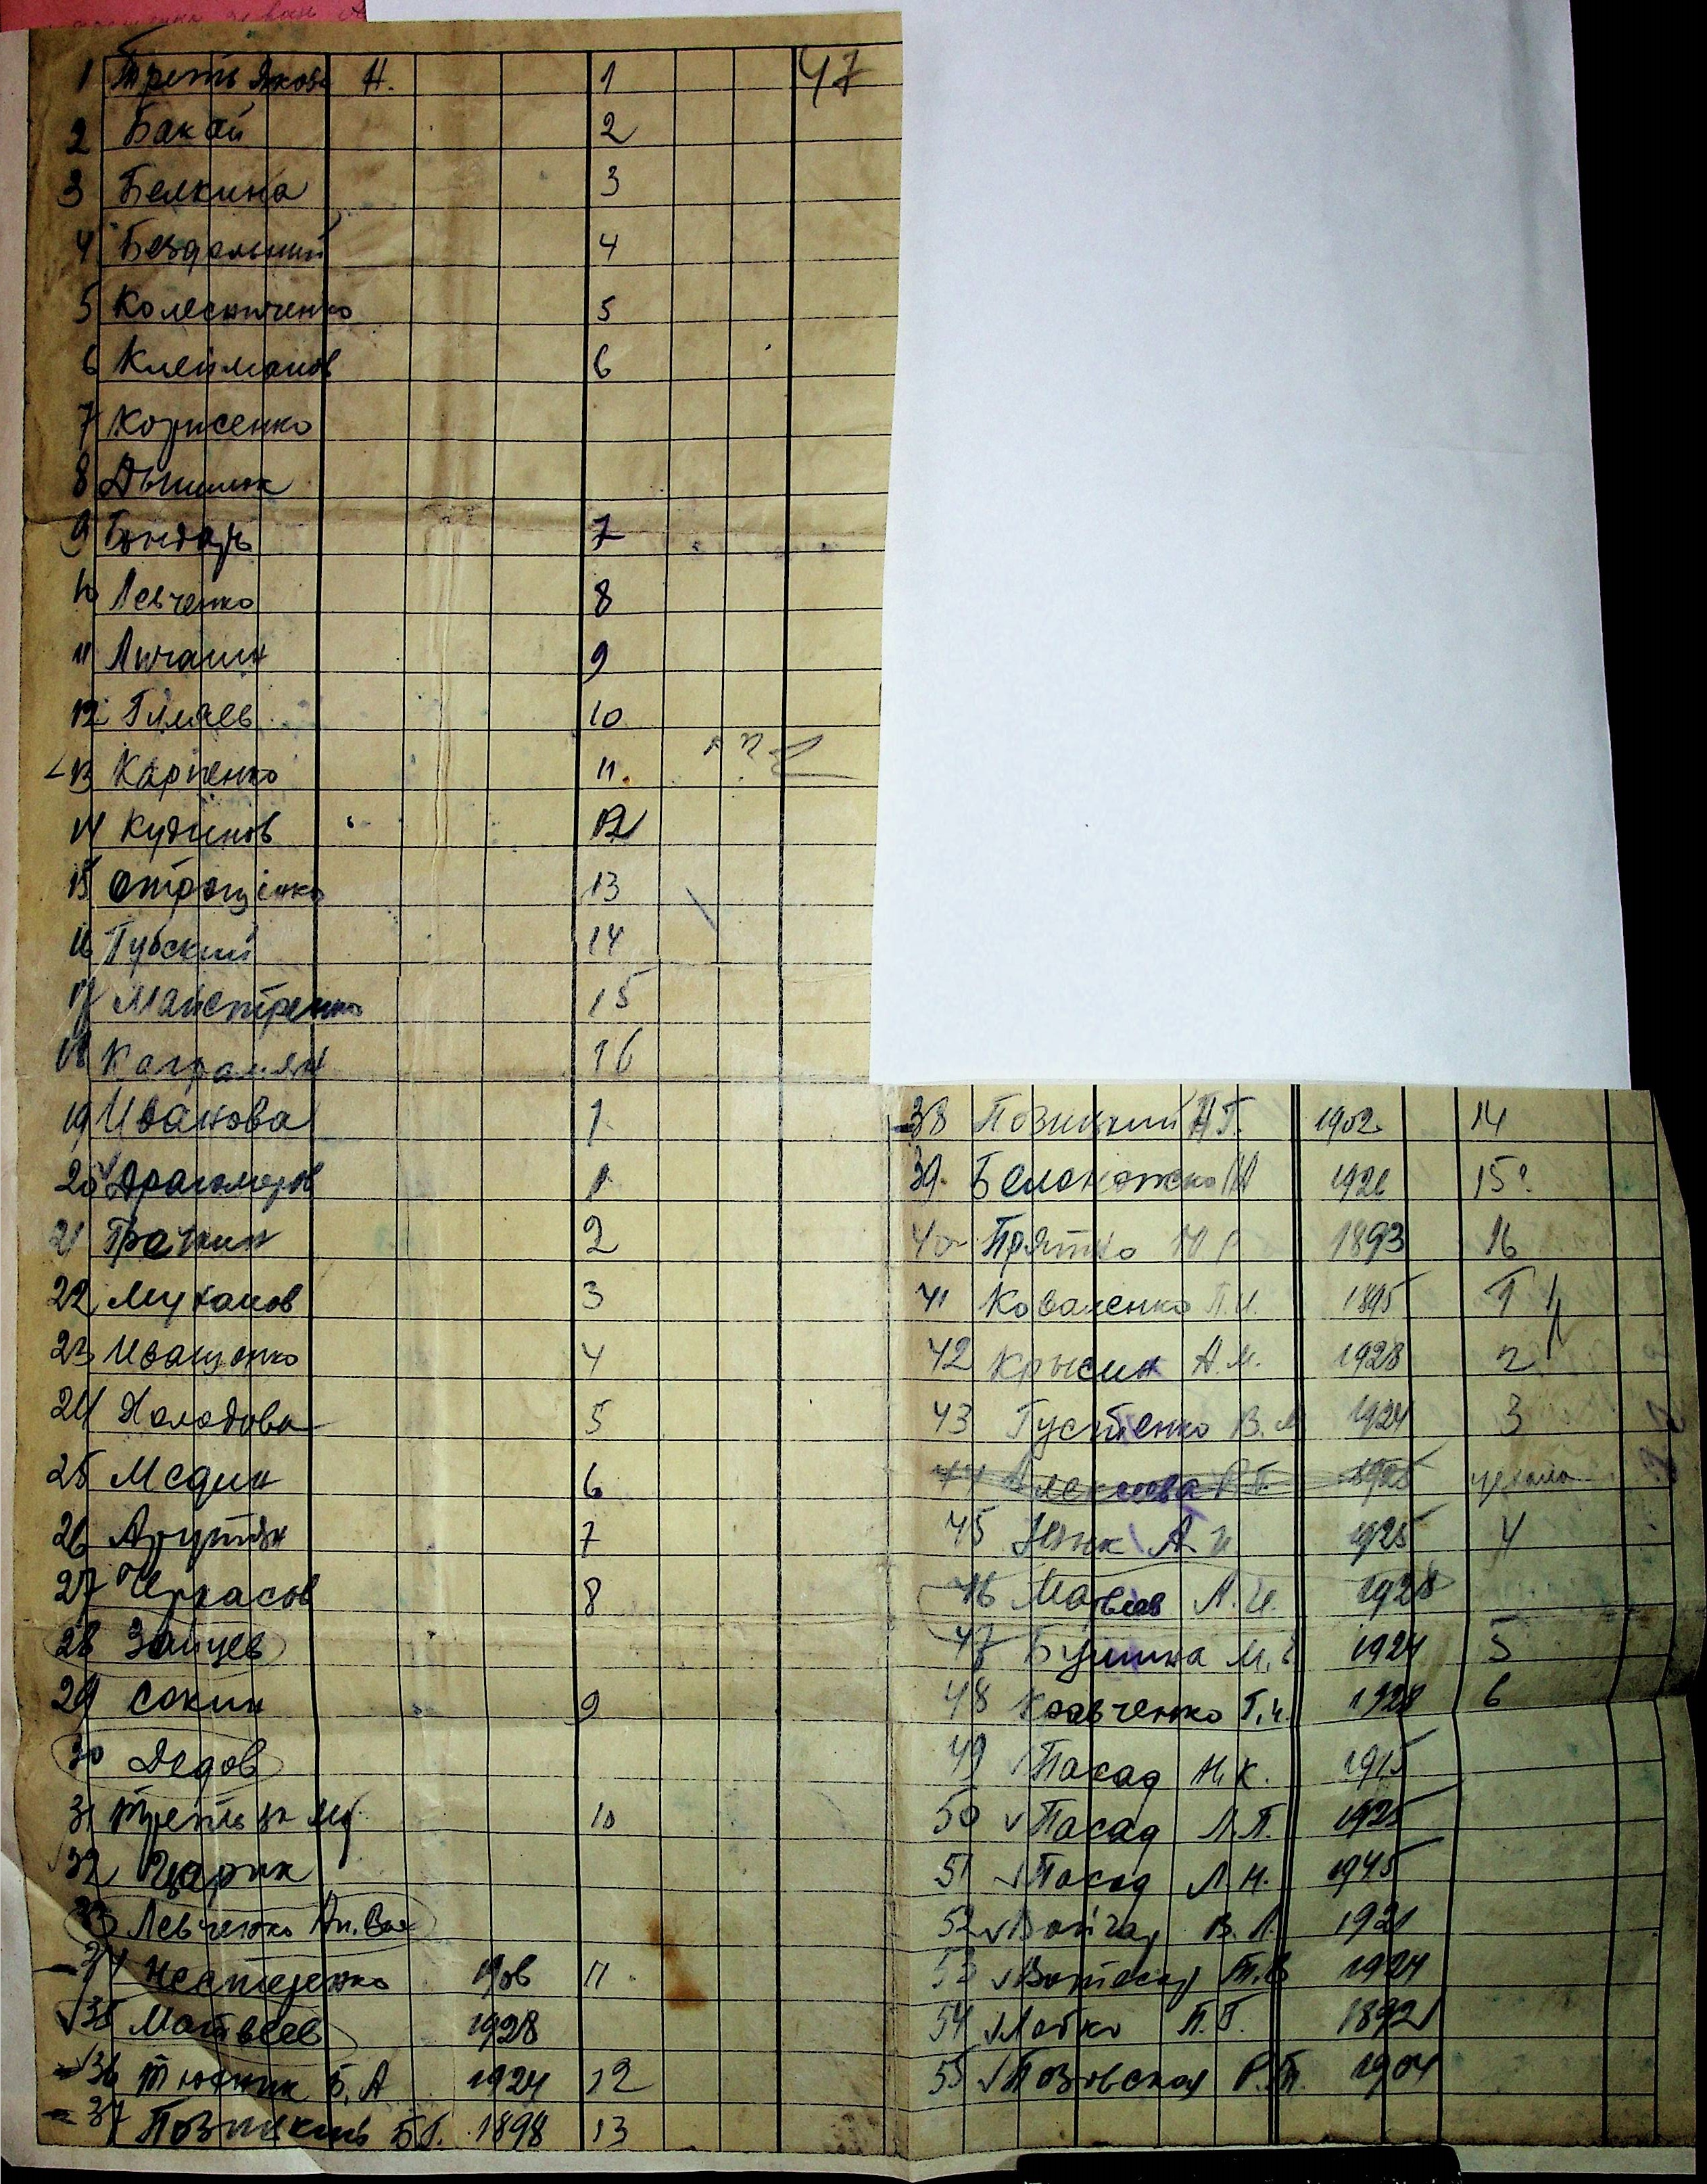 1 Третьяков Н. 1 47
2 Бакай 2
3 Белкина 3
4 Бездольный 4
5 Колесниченко 5
6 Клейманов 6
7 Корисенко
8
9 Бондарь 7
10 Левченко 8
11 Личагин 9
12 10
13 Карпенко 11.
14 Кудинов 12
15 Отрощенко 13
16 Губский 14
17 Майстренко 15
18 Каграмян 16
19 Иванова 1
20 Драгомиров 1
21 Грачкин 2
22 Муханов 3
23 Иващенко 4
24 Холодова 5
25 Медин 6
26 Арутян 7
27 Черкасов 8
28 Зайцев
29 Сокин 9
30 Дедов
31 Третьяк 10
32 Царик
33 Левченко Ан. Вас
34 Нестеренко 11
35 Матвеев 1928
36 Тютюник Б. А 1924 12
37 Позицкий Б Г. 1898 13
38 Позицкий Н Г. 1902 14
39. Белоножко 1926 15?
40 Прятко 1893 16
41 Коваленко П. И. 1895 1
42 Крысин А. М. 1928 2
43 Густенко В. 1924 3
44 Алексеева 1925
45 А 1925 4
46 Матвеев Л. И. 1928
47 Бушина М. 1924 5
48 Кравченко Г. И. 1928 6
49 Пасад Н. К. 1915
50 Пасад Л. П. 1925
51 Пасад Л. Н. 1945
52 В. Л. 1921
53 1924
54 Лабко П. Г. 1892
55 Позовская Р. П. 1904